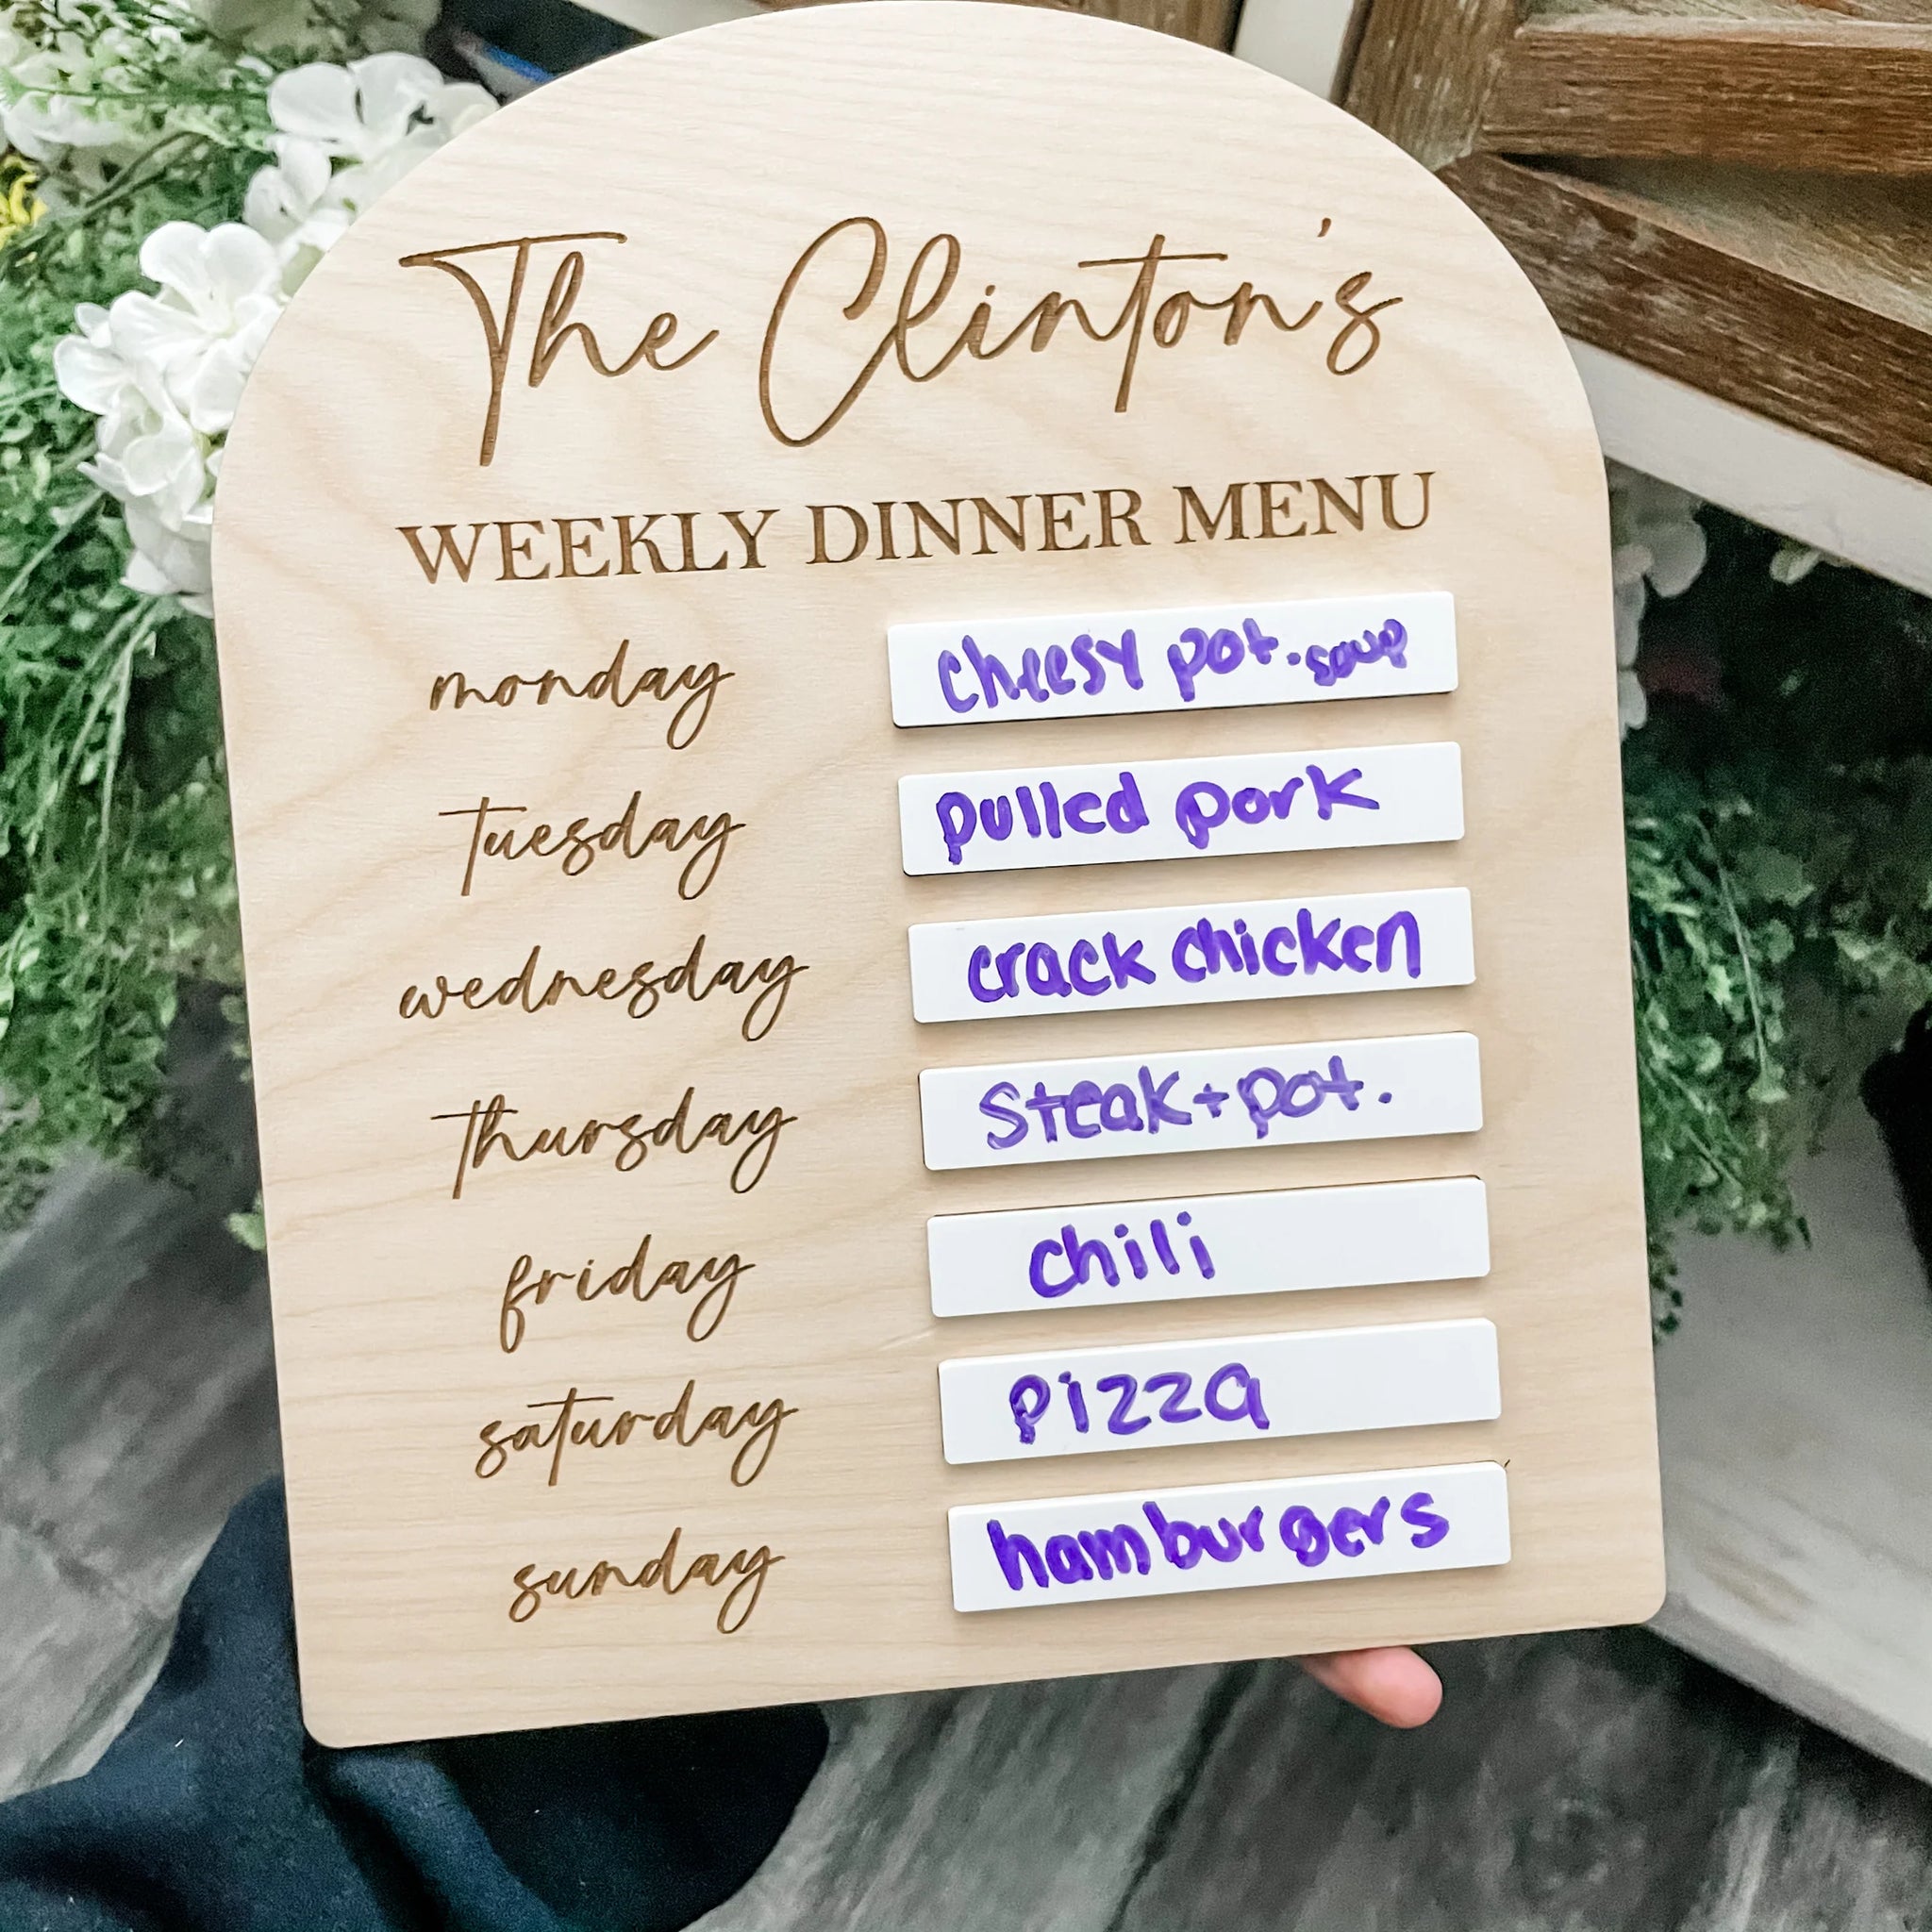 The Clinton's
WEEKLY DINNER MENU
monday cheesy pot. soup
tuesday pulled pork
wednesday crack chicken
thursday Steak + pot.
friday chili
saturday pizza
sunday hamburgers